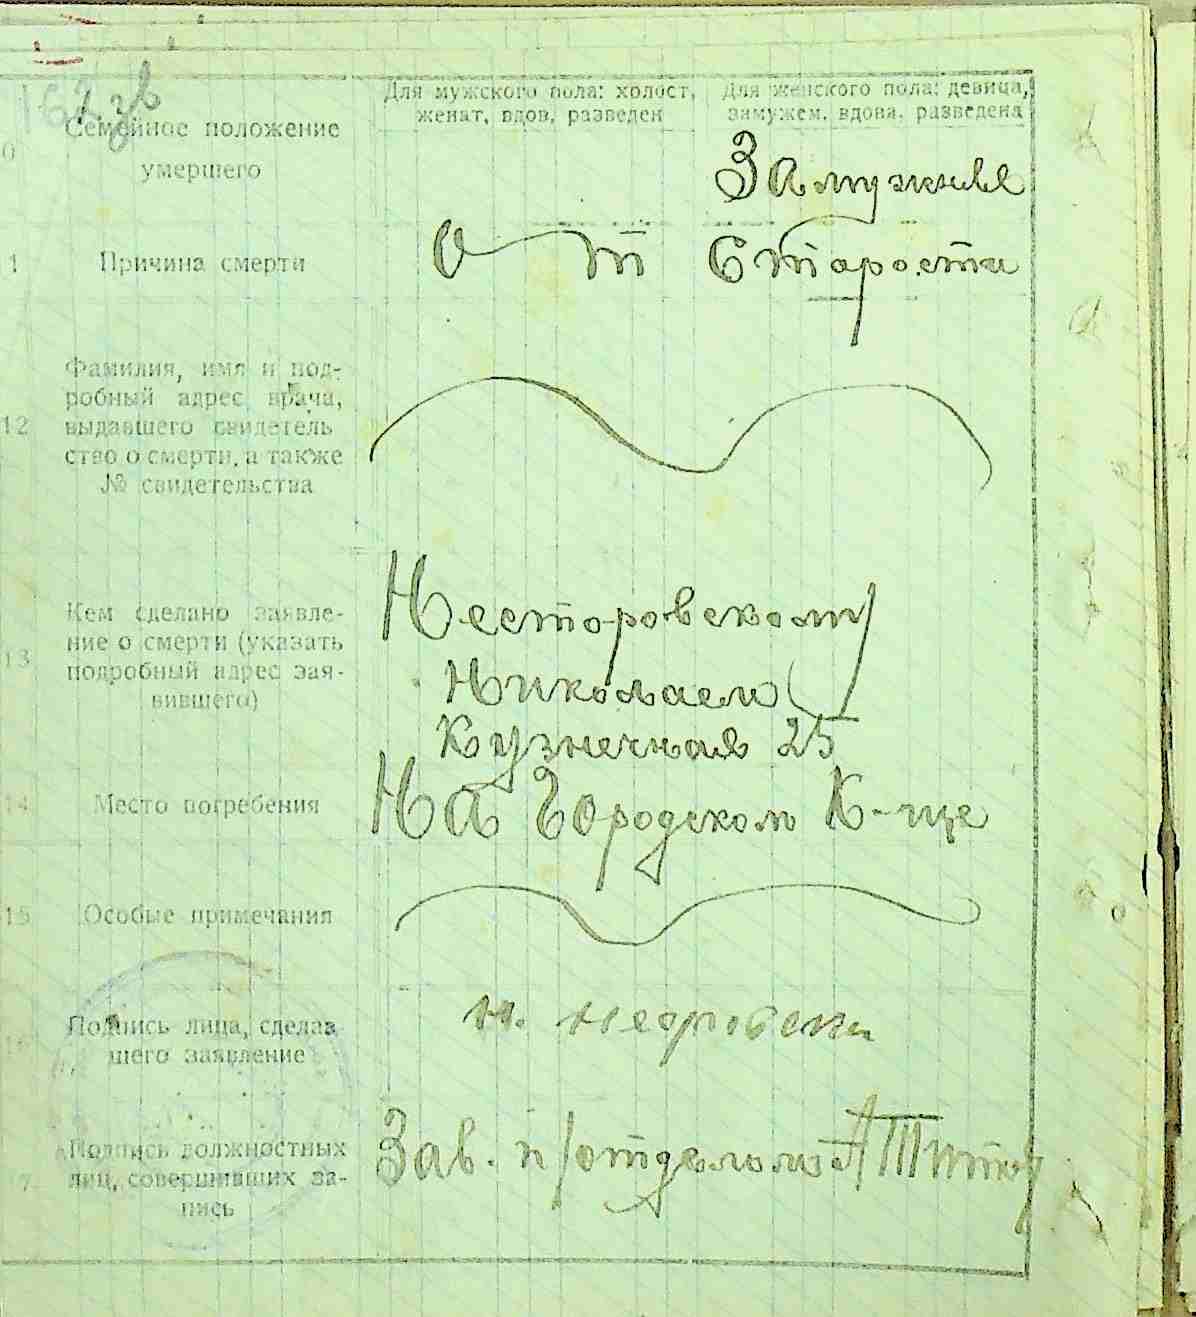 Для мужского пола: холост, женат, вдов, разведен
Для женского пола: девица, замужем, вдова, разведена
0
Семейное положение
умершего
Замужняя
1
Причина смерти
От Старости
Фамилия, имя и под-
робный адрес врача,
12
выдавшего свидетель
ство о смерти, а также
№ свидетельства
Кем сделано заявле-
ние о смерти (указать
13
подробный адрес зая-
вившего)
Несторовским
Николаем
Кузнечная 25
14
Место погребения
На Городском К-ще
15
Особые примечания
Подпись лица, сделав
шего заявление
Н.
Подпись должностных
лиц, совершивших за-
пись
Зав. п/отделом